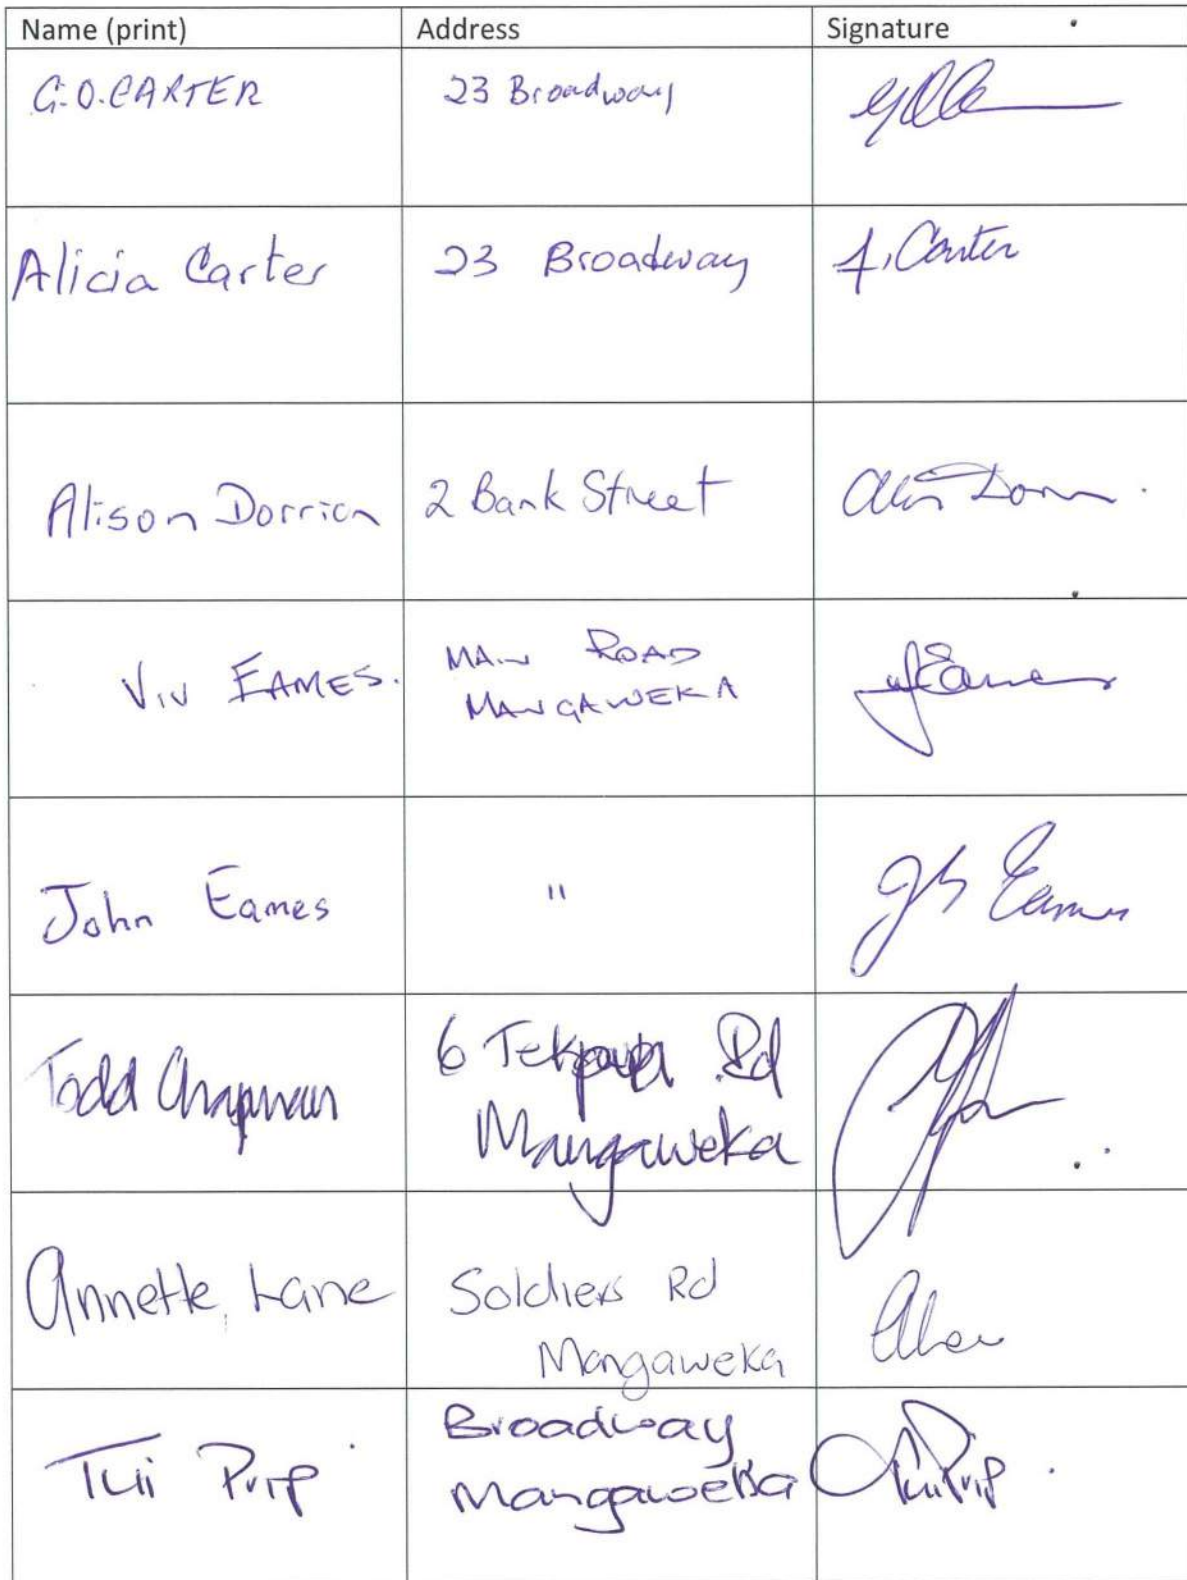 Name (print) Address Signature
G.O.CARTER 23 Broadway
Alicia Carter 23 Broadway A. Carter
Alison Dorrian 2 Bank Street
Viv EAMES. MAIN ROAD
MANGAWEKA
John Eames " Eames
Todd Chapman 6 Rd
Mangaweka
Annette Lane Soldiers Rd
Mangaweka
Broadway
Tui Mangaweka